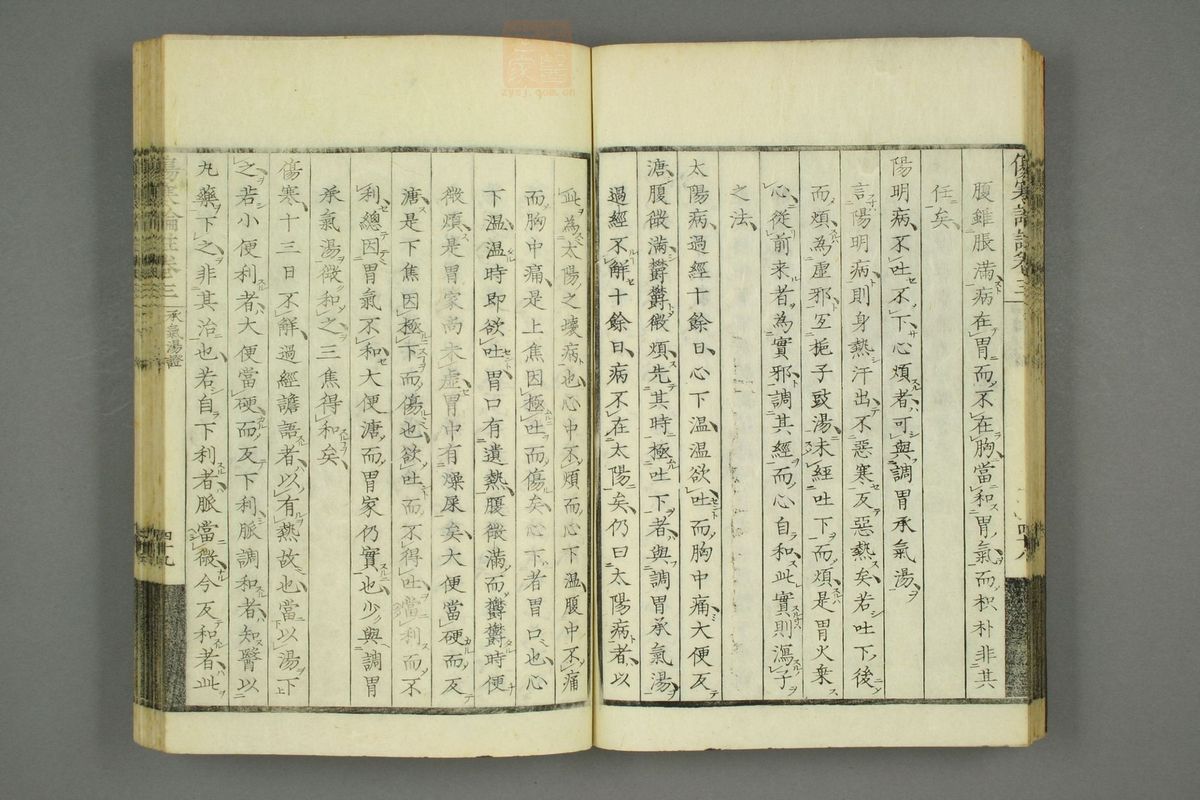 腹雖脹滿病在胃而不在胸當和胃氣而枳朴非其
任矣
陽明病不吐不下心煩者可與調胃承氣湯
言陽明病則身熱汗出不惡寒反惡熱矣若吐下後
而煩為虛邪宜梔子豉湯未經吐下而煩是胃火乗
心從前来者為實邪調其經而心自和此實則瀉子
之法
太陽病過經十餘日心下温温欲吐而胸中痛大便反
溏腹微滿欝欝微煩先其時極吐下者與調胃承氣湯
過經不解十餘日病不在太陽矣仍曰太陽病者以
此為太陽之壊病也心中不煩而心下温腹中不痛
而胸中痛是上焦因極吐而傷矣心下者胃口也心
下温温時即欲吐胃口有遺熱腹微滿而欝欝時便
微煩是胃家尚未虛胃中有燥屎矣大便當硬而反
溏是下焦因極下而傷也欲吐而不得吐當利而不
利總因胃氣不和大便溏而胃家仍實也少與調胃
承氣湯微和之三焦得和矣
傷寒十三日不解過經譫語者以有熱故也當以湯下
之若小便利者大便當硬而反下利脈調和者知醫以
丸藥下之非其治也若自下利者脈當微今反和者此
傷寒論註卷三
承氣湯證
四十九